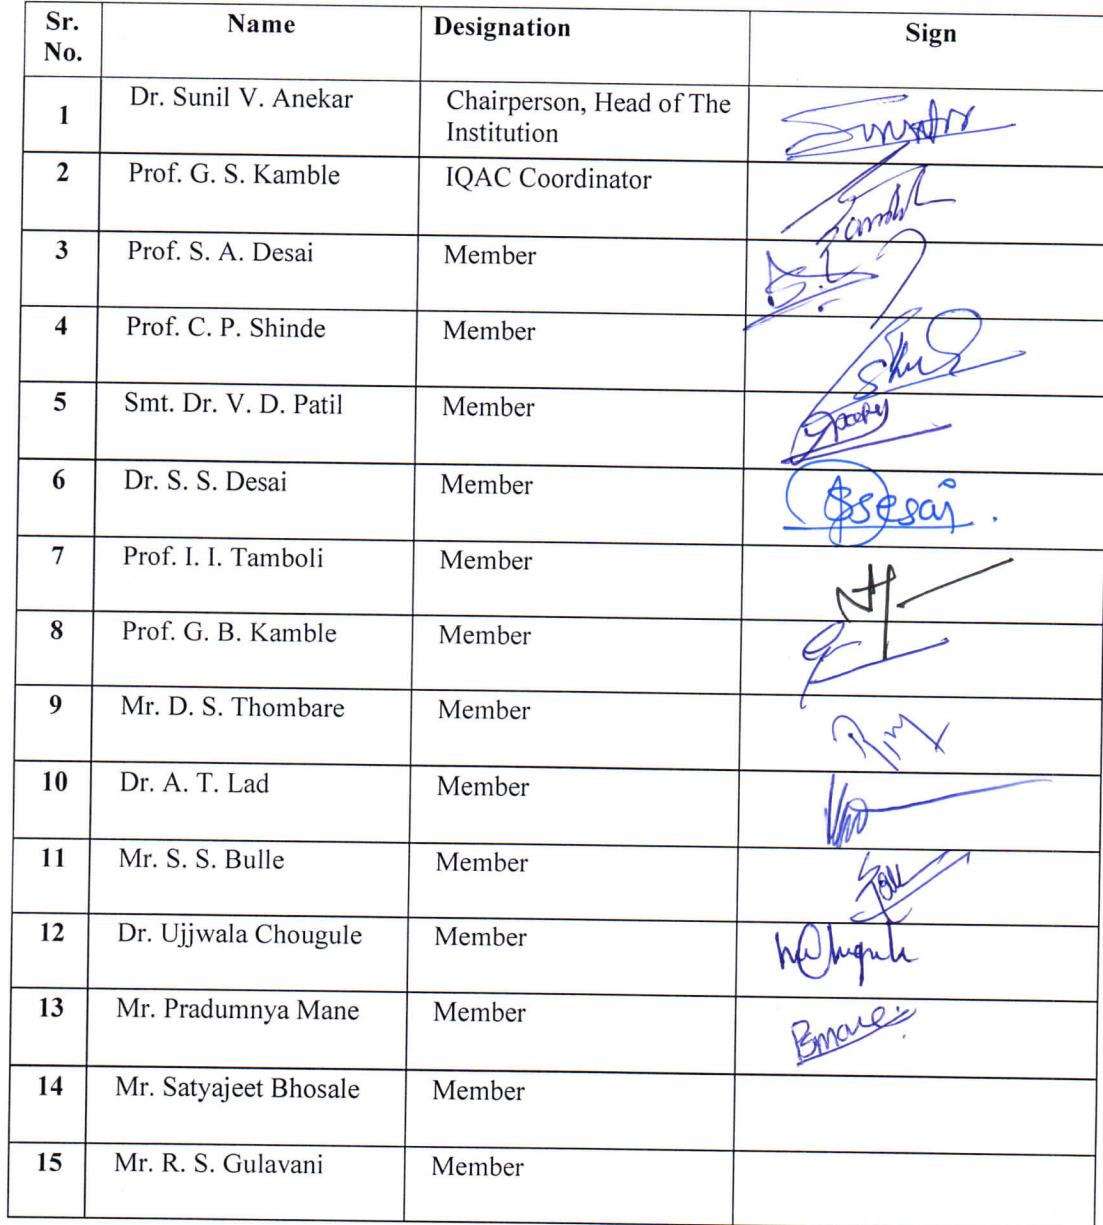 Sr. No. Name Designation Sign
1 Dr. Sunil V. Anekar Chairperson, Head of The Institution
2 Prof. G. S. Kamble IQAC Coordinator
3 Prof. S. A. Desai Member
4 Prof. C. P. Shinde Member
5 Smt. Dr. V. D. Patil Member
6 Dr. S. S. Desai Member
7 Prof. I. I. Tamboli Member
8 Prof. G. B. Kamble Member
9 Mr. D. S. Thombare Member
10 Dr. A. T. Lad Member
11 Mr. S. S. Bulle Member
12 Dr. Ujjwala Chougule Member
13 Mr. Pradumnya Mane Member
14 Mr. Satyajeet Bhosale Member
15 Mr. R. S. Gulavani Member